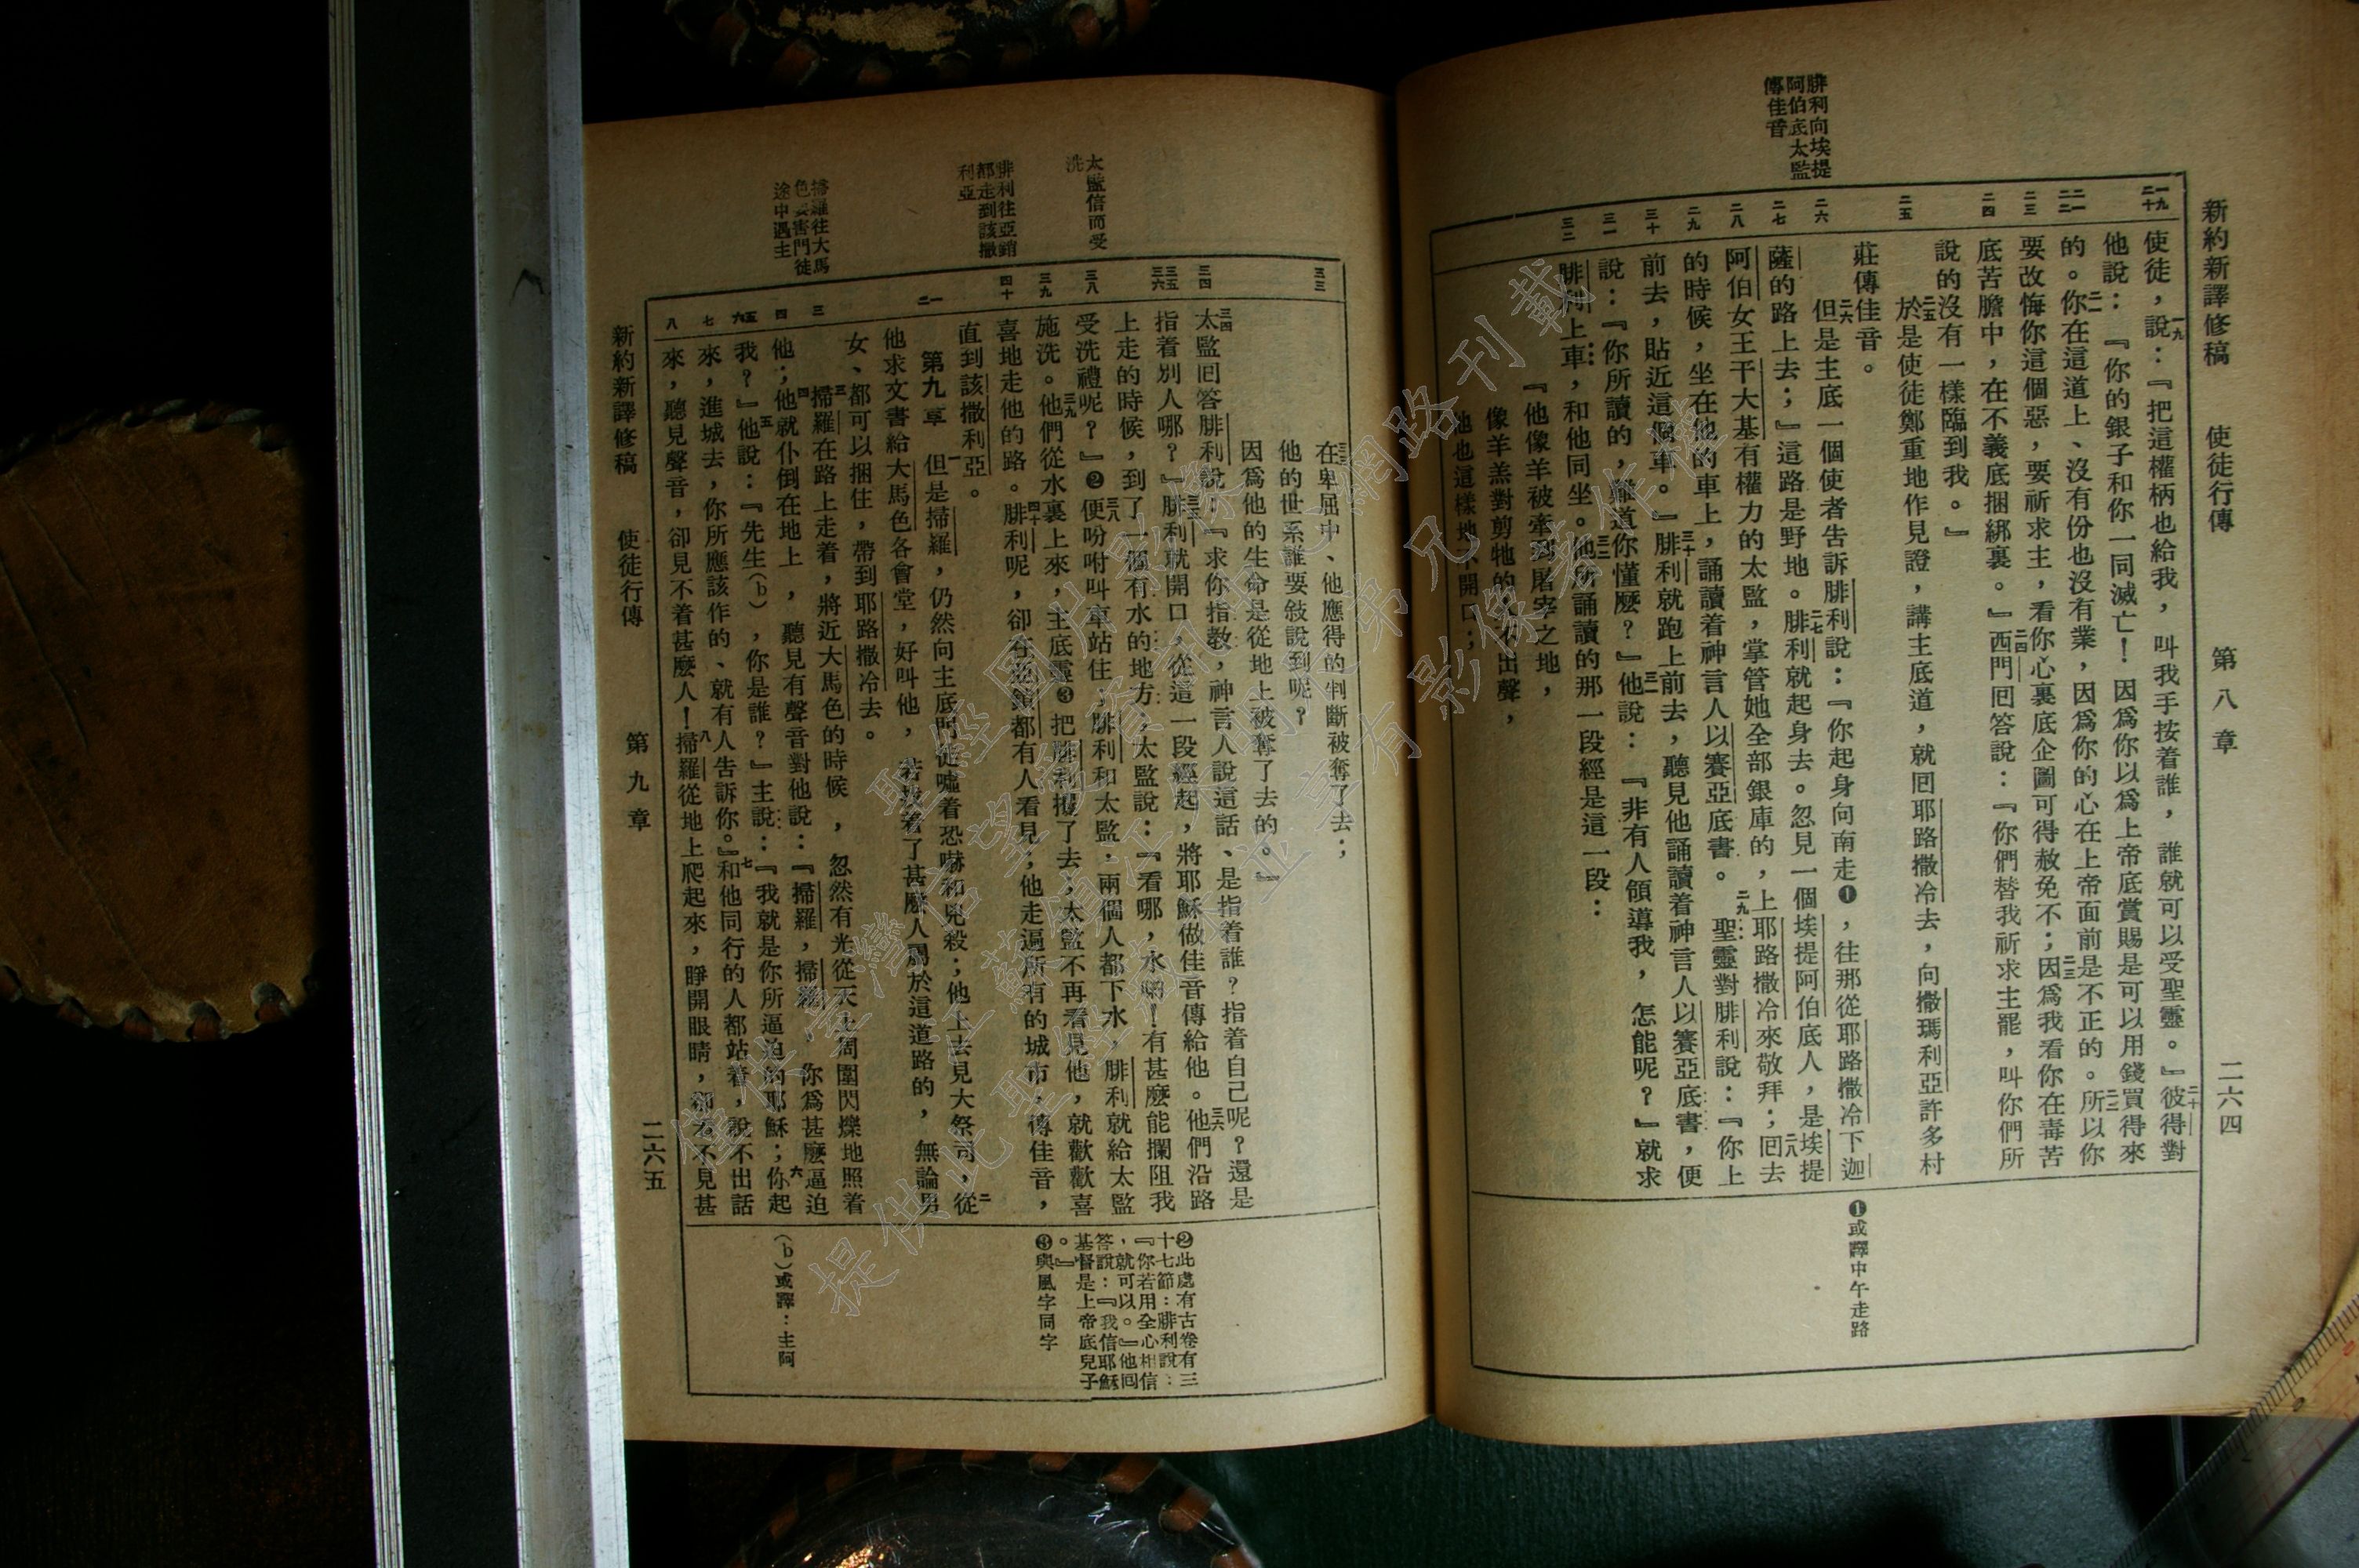 新約新譯修稿　使徒行傳　第八章　二六四
腓利向埃提
阿伯底太監
傳佳音
一九
二十
二一
二二
二三
二四
二五
二六
二七
二八
二九
三十
三一
三二
使徒，說：『把這權柄也給我，叫我手按着誰，誰就可以受聖靈。』彼得對
他說：『你的銀子和你一同滅亡！因爲你以爲上帝底賞賜是可以用錢買得來
的。你在這道上、沒有份也沒有業，因爲你的心在上帝面前是不正的。所以你
要改悔你這個惡，要祈求主，看你心裏底企圖可得赦免不；因爲我看你在毒苦
底苦膽中，在不義底捆綁裏。』西門囘答說：『你們替我祈求主罷，叫你們所
說的沒有一樣臨到我。』
於是使徒鄭重地作見證，講主底道，就囘耶路撒冷去，向撒瑪利亞許多村
莊傳佳音。
但是主底一個使者告訴腓利說：『你起身向南走❶，往那從耶路撒冷下迦
薩的路上去；』這路是野地。腓利就起身去。忽見一個埃提阿伯底人，是埃提
阿伯女王干大基有權力的太監，掌管她全部銀庫的，上耶路撒冷來敬拜；囘去
的時候，坐在他的車上，誦讀着神言人以賽亞底書。聖靈對腓利說：『你上
前去，貼近這個車。』腓利就跑上前去，聽見他誦讀着神言人以賽亞底書，便
說：『你所讀的，難道你懂麼？』他說：『非有人領導我，怎能呢？』就求
腓利上車，和他同坐。他所誦讀的那一段經是這一段：
『他像羊被牽到屠宰之地，
像羊羔對剪牠的不出聲，
他也這樣地不開口；
❶或譯中午走路
太監信而受
洗
腓利往亞鎖
都走到該撒
利亞
掃羅往大馬
色要害門徒
途中遇主
三三
三四
三五
三六
三八
三九
四十
一
二
三
四
五
六
七
八
在卑屈中、他應得的判斷被奪了去；
他的世系誰要敍說到呢？
因爲他的生命是從地上被奪了去的。』
太監囘答腓利說：『求你指教，神言人說這話、是指着誰？指着自己呢？還是
指着別人哪？』腓利就開口，從這一段經起，將耶穌做佳音傳給他。他們沿路
上走的時候，到了一個有水的地方，太監說：『看哪，水啊！有甚麼能攔阻我
受洗禮呢？』❷便吩咐叫車站住；腓利和太監，兩個人都下水，腓利就給太監
施洗。他們從水裏上來，主底靈❸把腓利提了去，太監不再看見他，就歡歡喜
喜地走他的路。腓利呢，卻在亞鎖都有人看見；他走遍所有的城市，傳佳音，
直到該撒利亞。
第九章　但是掃羅，仍然向主底門徒噓着恐嚇和兇殺；他上去見大祭司，從
他求文書給大馬色各會堂，好叫他，若找着了甚麼人屬於這道路的，無論男
女、都可以捆住，帶到耶路撒冷去。
掃羅在路上走着，將近大馬色的時候，忽然有光從天上周圍閃爍地照着
他；他就仆倒在地上，聽見有聲音對他說：『掃羅，掃羅，你爲甚麼逼迫
我？』他說：『先生(b)，你是誰？』主說：『我就是你所逼迫的耶穌；你起
來，進城去，你所應該作的、就有人告訴你。』和他同行的人都站着，說不出話
來，聽見聲音，卻見不着甚麼人！掃羅從地上爬起來，睜開眼睛，卻看不見甚
❷此處有古卷有三
十七節：腓利說：
『你若用全心相信
，就可以。』他囘
答說：『我信耶穌
基督是上帝底兒子
。』
❸與風字同字
(b)或譯：主阿
新約新譯修稿　使徒行傳　第九章　二六五